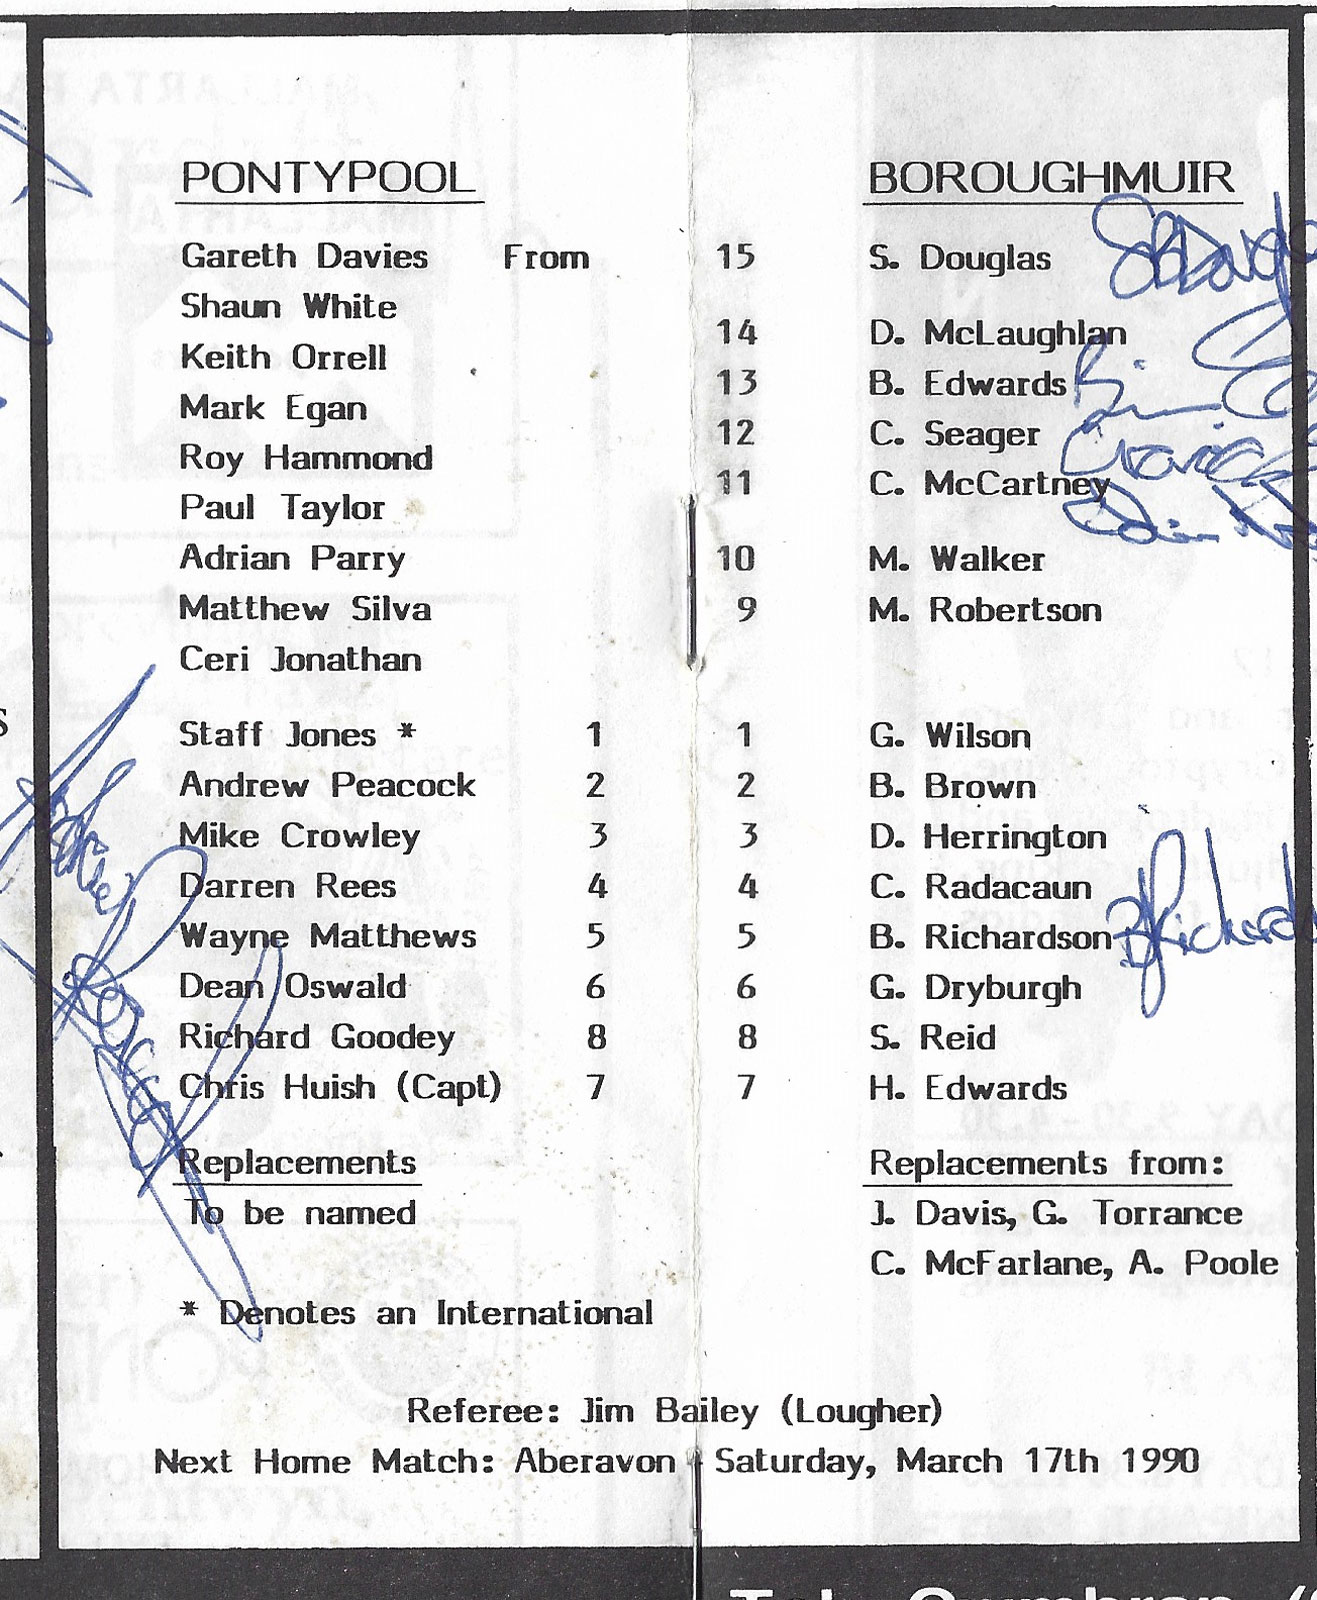 PONTYPOOL BOROUGHMUIR
Gareth Davies From 15 S. Douglas
Shaun White
14 D. McLaughlan
Keith Orrell
13 B. Edwards
Mark Egan
12 C. Seager
Roy Hammond
11 C. McCartney
Paul Taylor
Adrian Parry 10 M. Walker
Matthew Silva 9 M. Robertson
Ceri Jonathan
Staff Jones * 1 1 G. Wilson
Andrew Peacock 2 2 B. Brown
Mike Crowley 3 3 D. Herrington
Darren Rees 4 4 C. Radacaun
Wayne Matthews 5 5 B. Richardson
Dean Oswald 6 6 G. Dryburgh
Richard Goodey 8 8 S. Reid
Chris Huish (Capt) 7 7 H. Edwards
Replacements Replacements from:
To be named J. Davis, G. Torrance
C. McFarlane, A. Poole
* Denotes an International
Referee: Jim Bailey (Lougher)
Next Home Match: Aberavon - Saturday, March 17th 1990